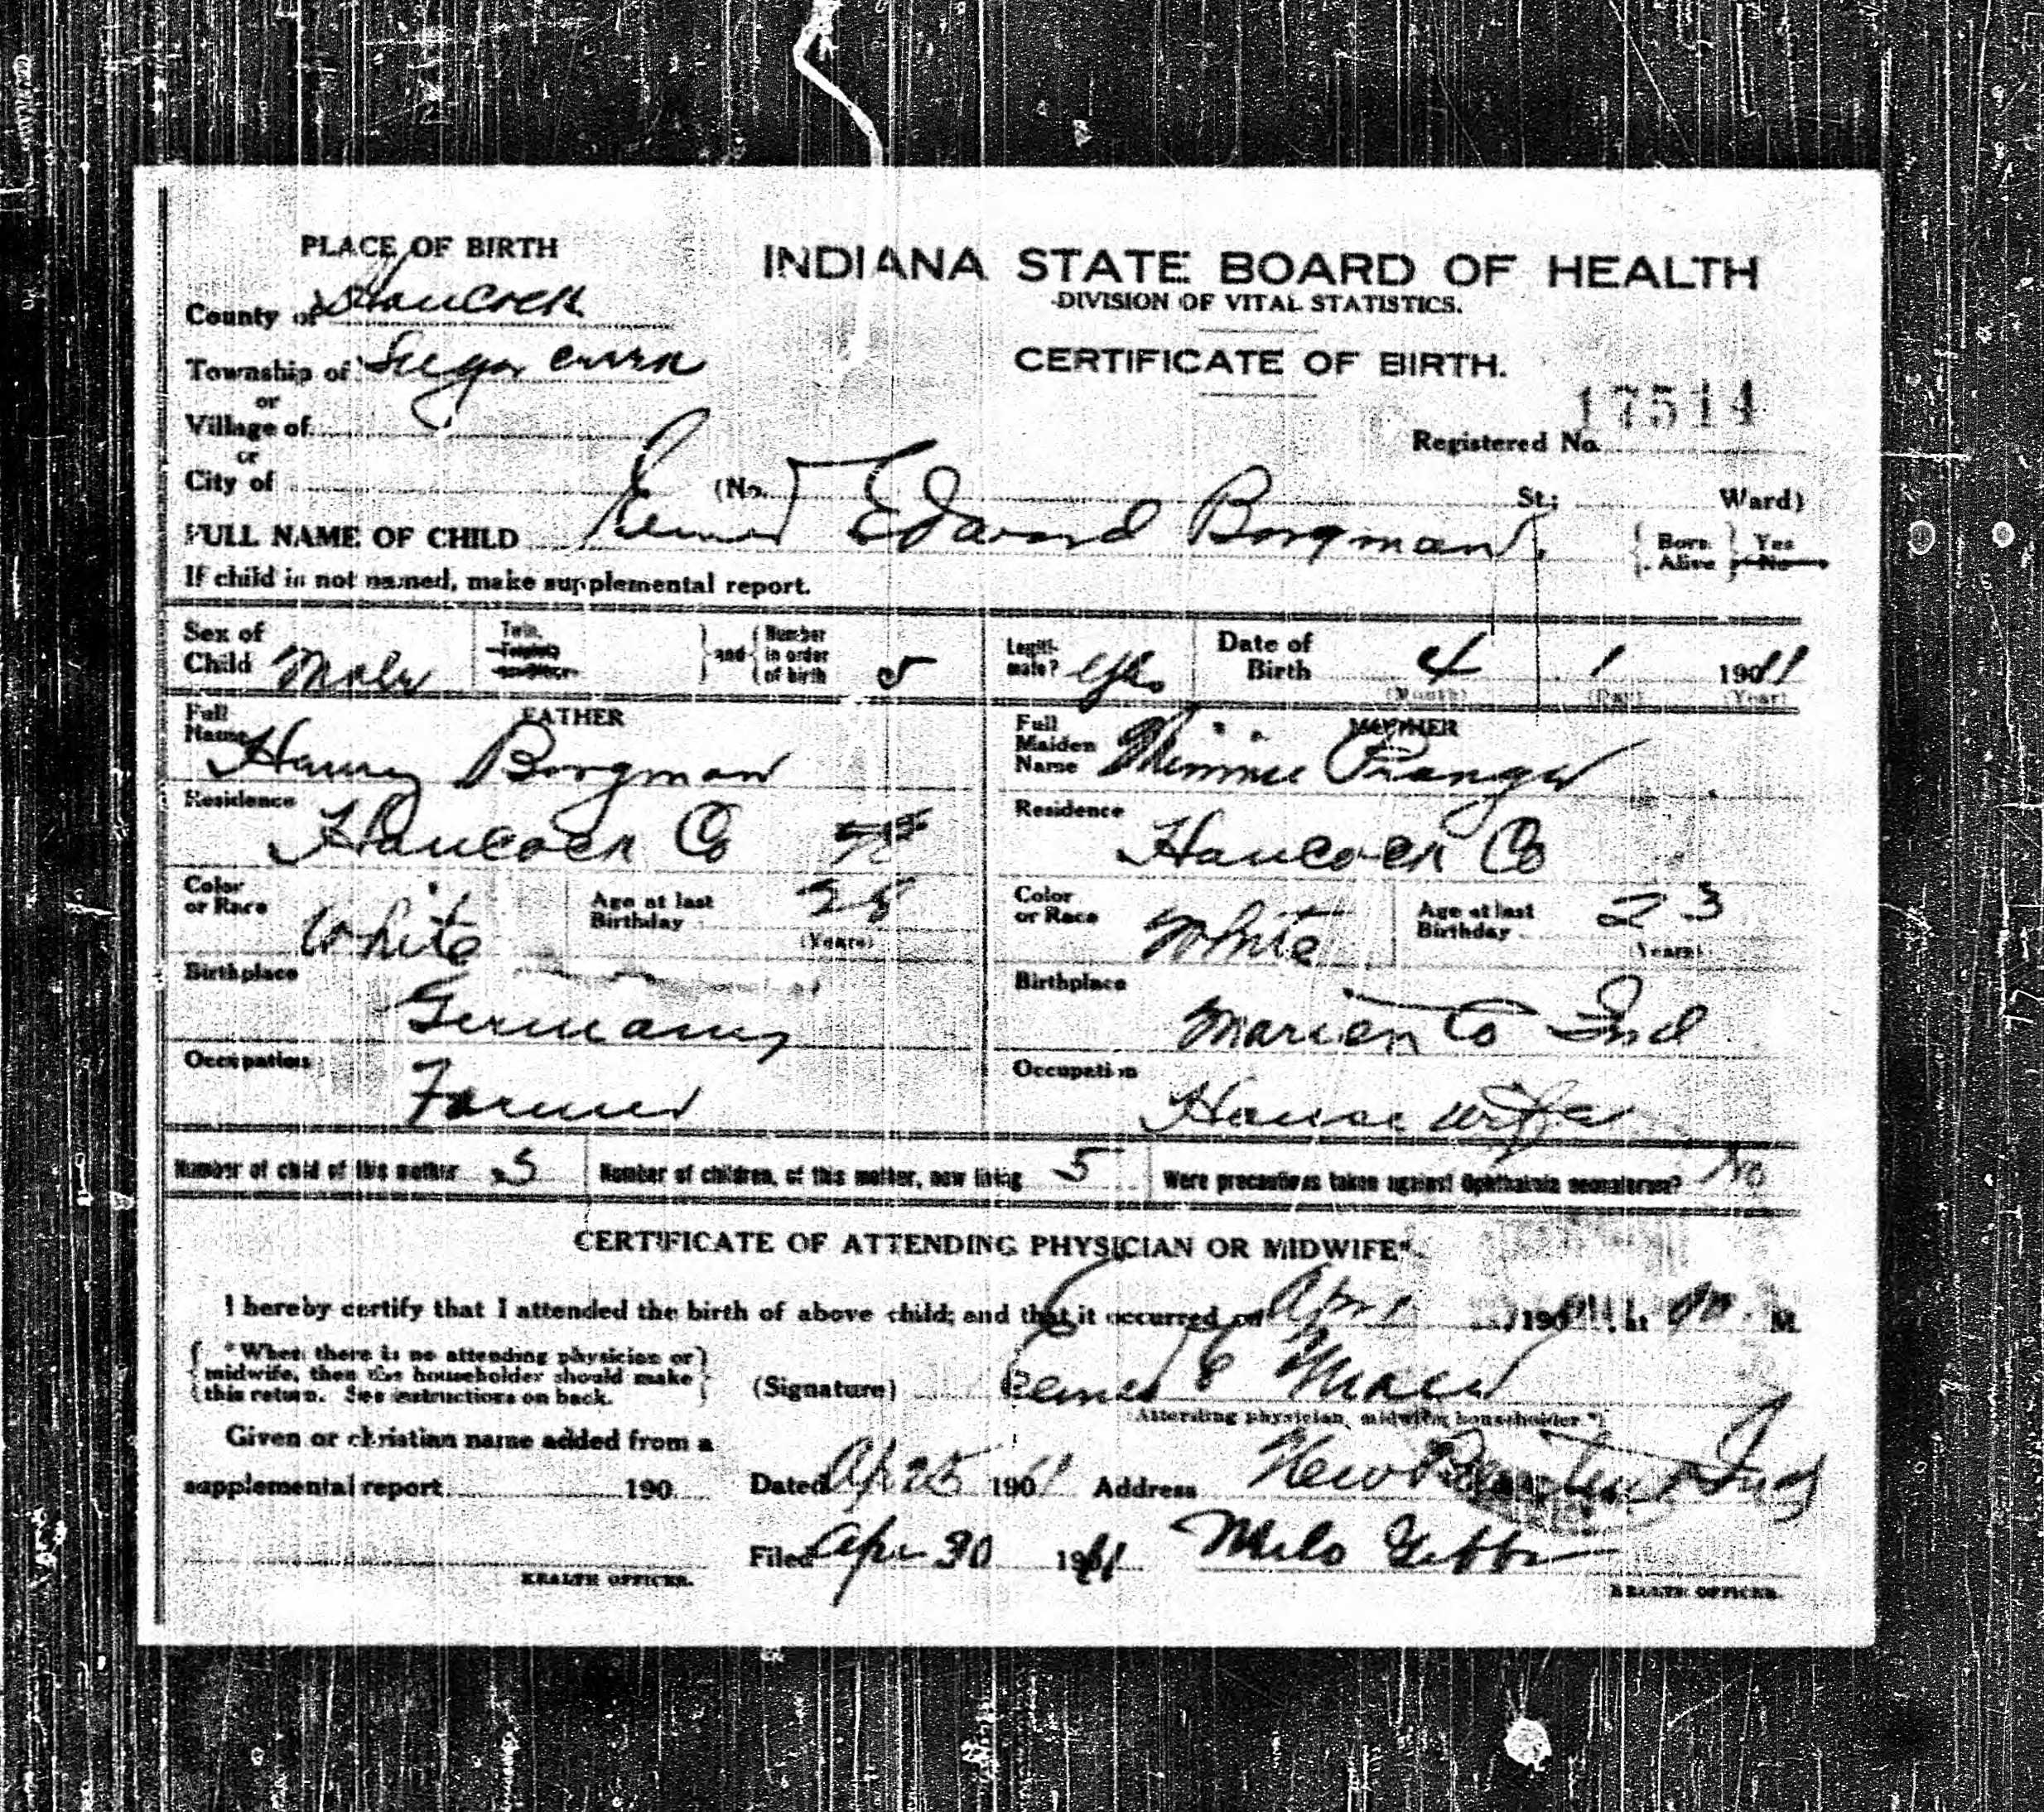 PLACE OF BIRTH
INDIANA STATE BOARD OF HEALTH
DIVISION OF VITAL STATISTICS.
CERTIFICATE OF BIRTH.
County of Hancock
Township of Sugar
or
Village of
or
City of (No. St.; Ward)
Registered No. 17514
FULL NAME OF CHILD Edward Borgman.
Born Alive Yes No
If child is not named, make supplemental report.
Sex of Child Male
Twin, Triplet, or other
and Number in order of birth 5
Legitimate? Yes
Date of Birth 4 1 1911
(Month) (Day) (Year)
FATHER
Full Name Henry Borgman
Residence Hancock Co
Color or Race White
Age at last Birthday 28 (Years)
Birthplace Germany
Occupation Farmer
MOTHER
Full Maiden Name Minnie Pranger
Residence Hancock Co
Color or Race White
Age at last Birthday 23 (Years)
Birthplace Marion Co Ind
Occupation House wife
Number of child of this mother 5
Number of children, of this mother, now living 5
Were precautions taken against Ophthalmia neonatorum? No
CERTIFICATE OF ATTENDING PHYSICIAN OR MIDWIFE*
I hereby certify that I attended the birth of above child; and that it occurred on Apr 1 1911, at M.
*When there is no attending physician or
midwife, then the householder should make
this return. See instructions on back.
(Signature) E
(Attending physician, midwife, householder.*)
Given or christian name added from a
supplemental report 190
HEALTH OFFICER.
Dated Apr 25 1911 Address New Ind
Filed Apr 30 1911 Milo Gibbs
HEALTH OFFICER.